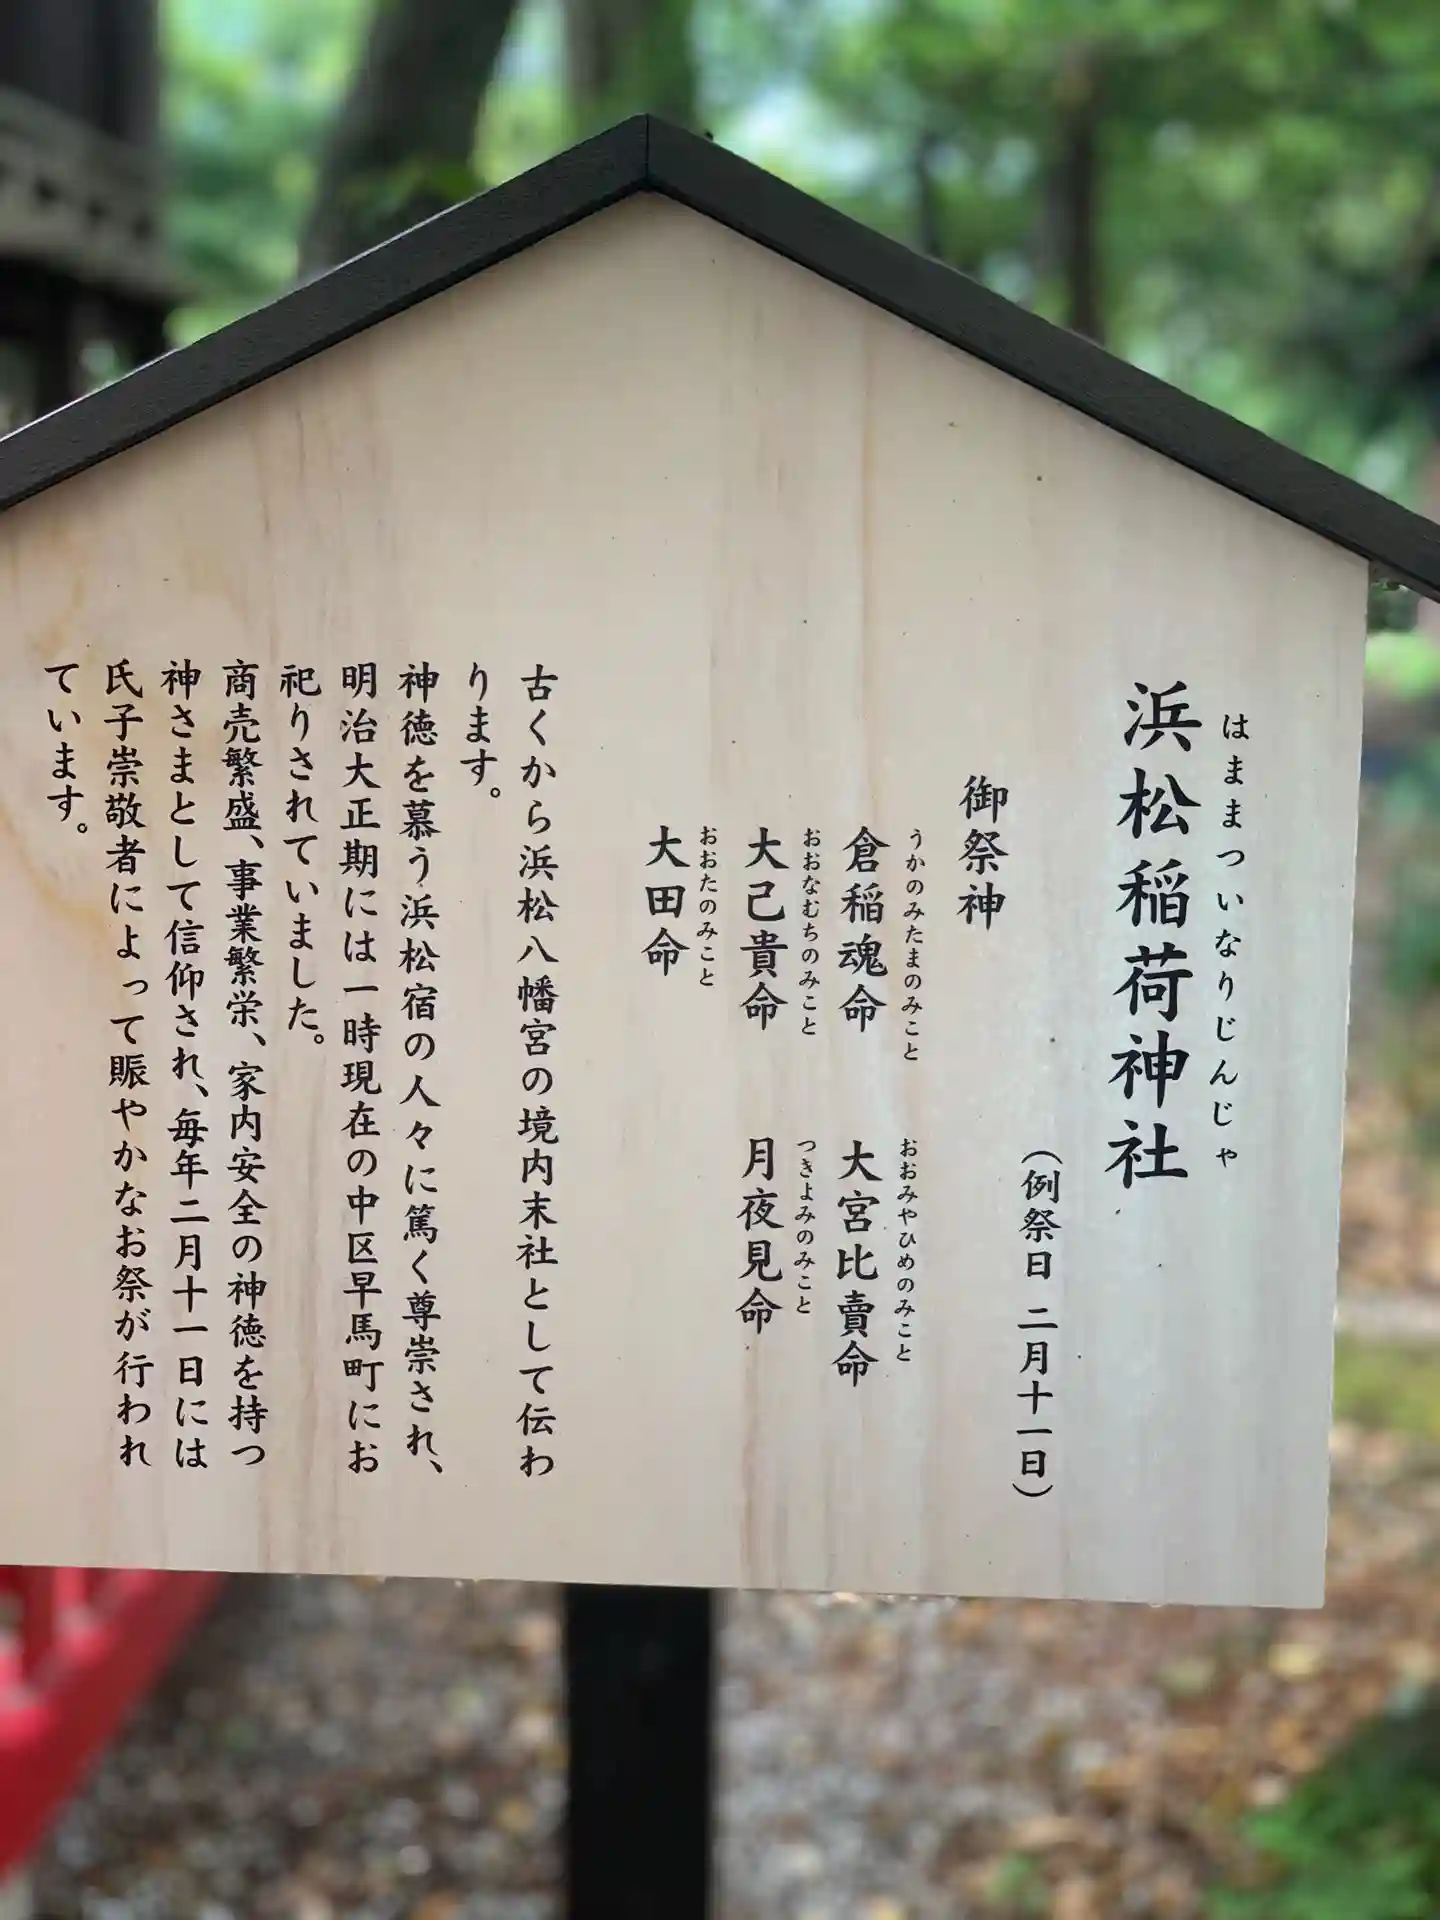 はままついなりじんじゃ
浜松稲荷神社
(例祭日 二月十一日)
御祭神
うかのみたまのみこと おおみやひめのみこと
倉稲魂命 大宮比賣命
おおなむちのみこと つきよみのみこと
大己貴命 月夜見命
おおたのみこと
大田命
古くから浜松八幡宮の境内末社として伝わ
ります。
神徳を慕う浜松宿の人々に篤く尊崇され、
明治大正期には一時現在の中区早馬町にお
祀りされていました。
商売繁盛、事業繁栄、家内安全の神徳を持つ
神さまとして信仰され、毎年二月十一日には
氏子崇敬者によって賑やかなお祭が行われ
ています。